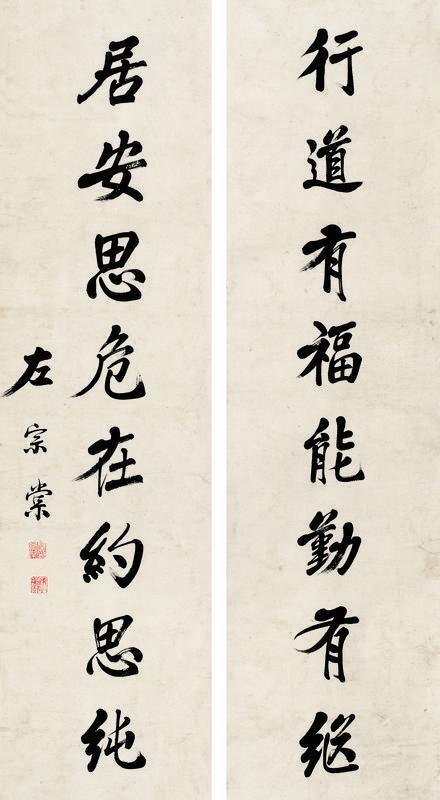 行道有福能勤有继
居安思危在約思纯
左宗棠